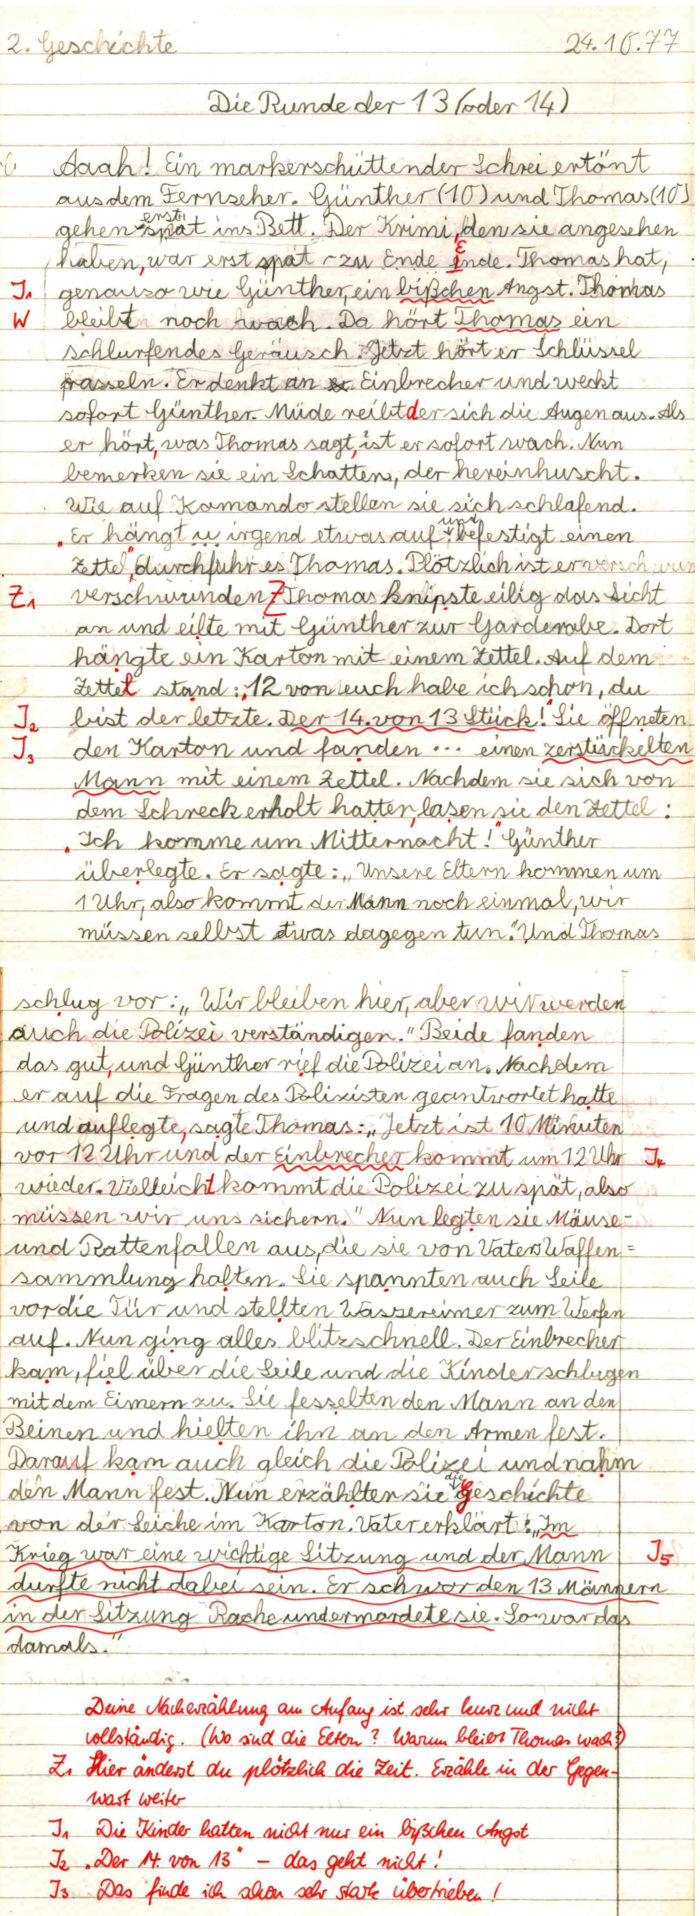 2. Geschichte 24.10.77
Die Runde der 13 (oder 14)
Aaah! Ein markerschüttender Schrei ertönt
aus dem Fernseher. Günther (10) und Thomas (10)
gehen erst spät ins Bett. Der Krimi, den sie angesehen
haben, war erst spät zu Ende Ende. Thomas hat,
J1 genauso wie Günther, ein bißchen Angst. Thomas
W bleibt noch wach. Da hört Thomas ein
schlurfendes Geräusch. Jetzt hört er Schlüssel
rasseln. Er denkt an Einbrecher und weckt
sofort Günther. Müde reibt der sich die Augen aus. Als
er hört, was Thomas sagt, ist er sofort wach. Nun
bemerken sie ein Schatten, der hereinhuscht.
Wie auf Komando stellen sie sich schlafend.
"Er hängt irgend etwas auf und befestigt einen
Zettel", durchfuhr es Thomas. Plötzlich ist er
Z1 verschwunden Z Thomas knipste eilig das Licht
an und eilte mit Günther zur Garderobe. Dort
hängte ein Karton mit einem Zettel. Auf dem
Zettel stand: "12 von euch habe ich schon, du
J2 bist der letzte. Der 14. von 13 Stück!" Sie öffneten
J3 den Karton und fanden ... einen zerstückelten
Mann mit einem Zettel. Nachdem sie sich von
dem Schreck erholt hatten, lasen sie den Zettel:
"Ich komme um Mitternacht!" Günther
überlegte. Er sagte: "Unsere Eltern kommen um
1 Uhr, also kommt der Mann noch einmal, wir
müssen selbst etwas dagegen tun." Und Thomas
schlug vor: "Wir bleiben hier, aber wir werden
auch die Polizei verständigen." Beide fanden
das gut, und Günther rief die Polizei an. Nachdem
er auf die Fragen des Polizisten geantwortet hatte
und auflegte, sagte Thomas: "Jetzt ist 10 Minuten
vor 12 Uhr und der Einbrecher kommt um 12 Uhr J4
wieder. Vielleicht kommt die Polizei zu spät, also
müssen wir uns sichern." Nun legten sie Mäuse-
und Rattenfallen aus, die sie von Vaters Waffen=
sammlung holten. Sie spannten auch Seile
vor die Tür und stellten Wassereimer zum Werfen
auf. Nun ging alles blitzschnell. Der Einbrecher
kam, fiel über die Seile und die Kinder schlugen
mit dem Eimern zu. Sie fesselten den Mann an den
Beinen und hielten ihn an den Armen fest.
Darauf kam auch gleich die Polizei und nahm
den Mann fest. Nun erzählten sie die Geschichte
von der Leiche im Karton. Vater erklärt: "Im
Krieg war eine wichtige Sitzung und der Mann J5
durfte nicht dabei sein. Er schwor den 13 Männern
in der Sitzung Rache und ermordete sie. So war das
damals."
Deine Nacherzählung am Anfang ist sehr kurz und nicht
vollständig. (Wo sind die Eltern? Warum bleibt Thomas wach?)
Z1 Hier änderst du plötzlich die Zeit. Erzähle in der Gegen-
wart weiter
J1 Die Kinder hatten nicht nur ein bißchen Angst
J2 "Der 14. von 13" – das geht nicht!
J3 Das finde ich schon sehr stark übertrieben!